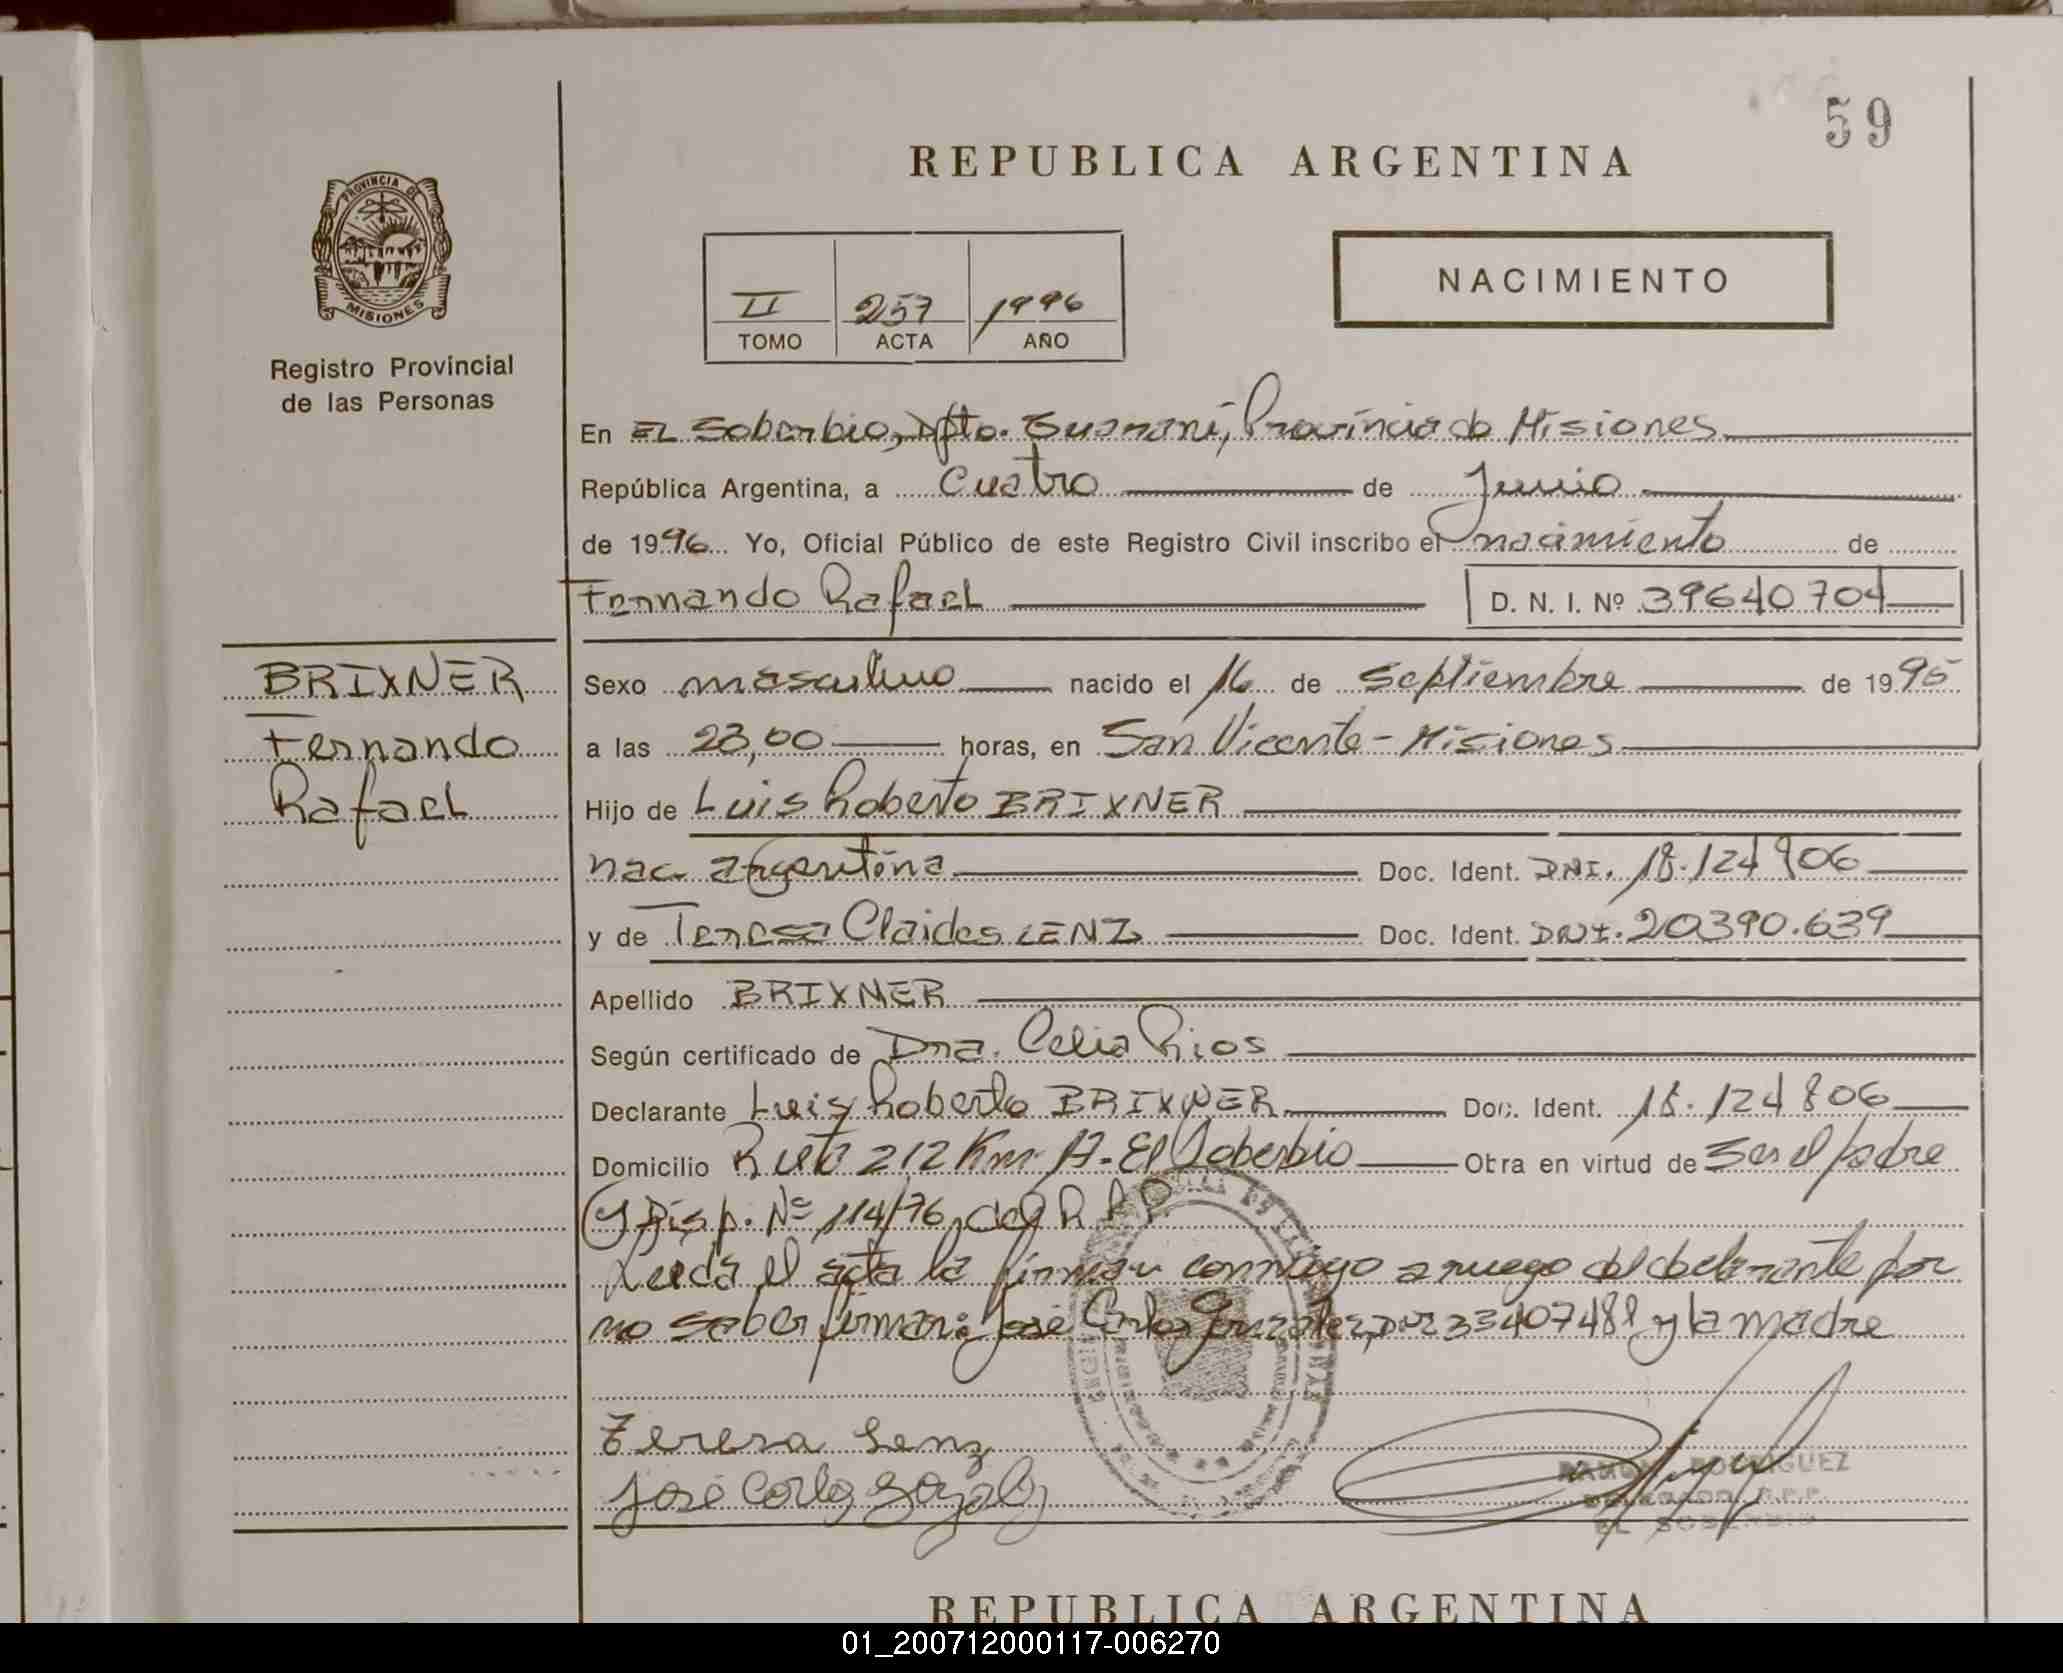 59
REPUBLICA ARGENTINA
PROVINCIA DE
MISIONES
II 257 1996
TOMO ACTA AÑO
NACIMIENTO
Registro Provincial
de las Personas
En EL Soberbio, Dpto. Guaraní, Provincia de Misiones
República Argentina, a Cuatro de Junio
de 1996 Yo, Oficial Público de este Registro Civil inscribo el nacimiento de
Fernando Rafael D. N. I. Nº 39640704
BRIXNER
Fernando
Rafael
Sexo masculino nacido el 16 de Septiembre de 1995
a las 23,00 horas, en San Vicente - Misiones
Hijo de Luis Roberto BRIXNER
nac. argentina Doc. Ident. DNI. 18.124806
y de Teresa Claides LENZ Doc. Ident. DNI. 20390.639
Apellido BRIXNER
Según certificado de Dra. Celia Rios
Declarante Luis Roberto BRIXNER Doc. Ident. 18.124806
Domicilio Ruta 212 Km. El Soberbio Obra en virtud de ser el padre
y Disp. Nº 114/76, del R.P.P.
Leída el acta la firman conmigo a ruego del declarante por
no saber firmar: José Carlos Gonzalez, y la madre
Teresa Lenz
José Carlos
RAMON RODRIGUEZ
DELEGADO R.P.P.
EL SOBERBIO
REPUBLICA ARGENTINA
01_200712000117-006270